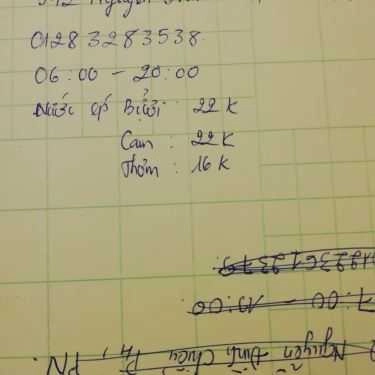 Nguyễn
01283283538
06:00 - 20:00
Nước ép Bưởi : 22K
Cam : 22K
Thơm : 16K
7:00 - 19:00
Nguyễn Đình Chiểu, P4, PN.